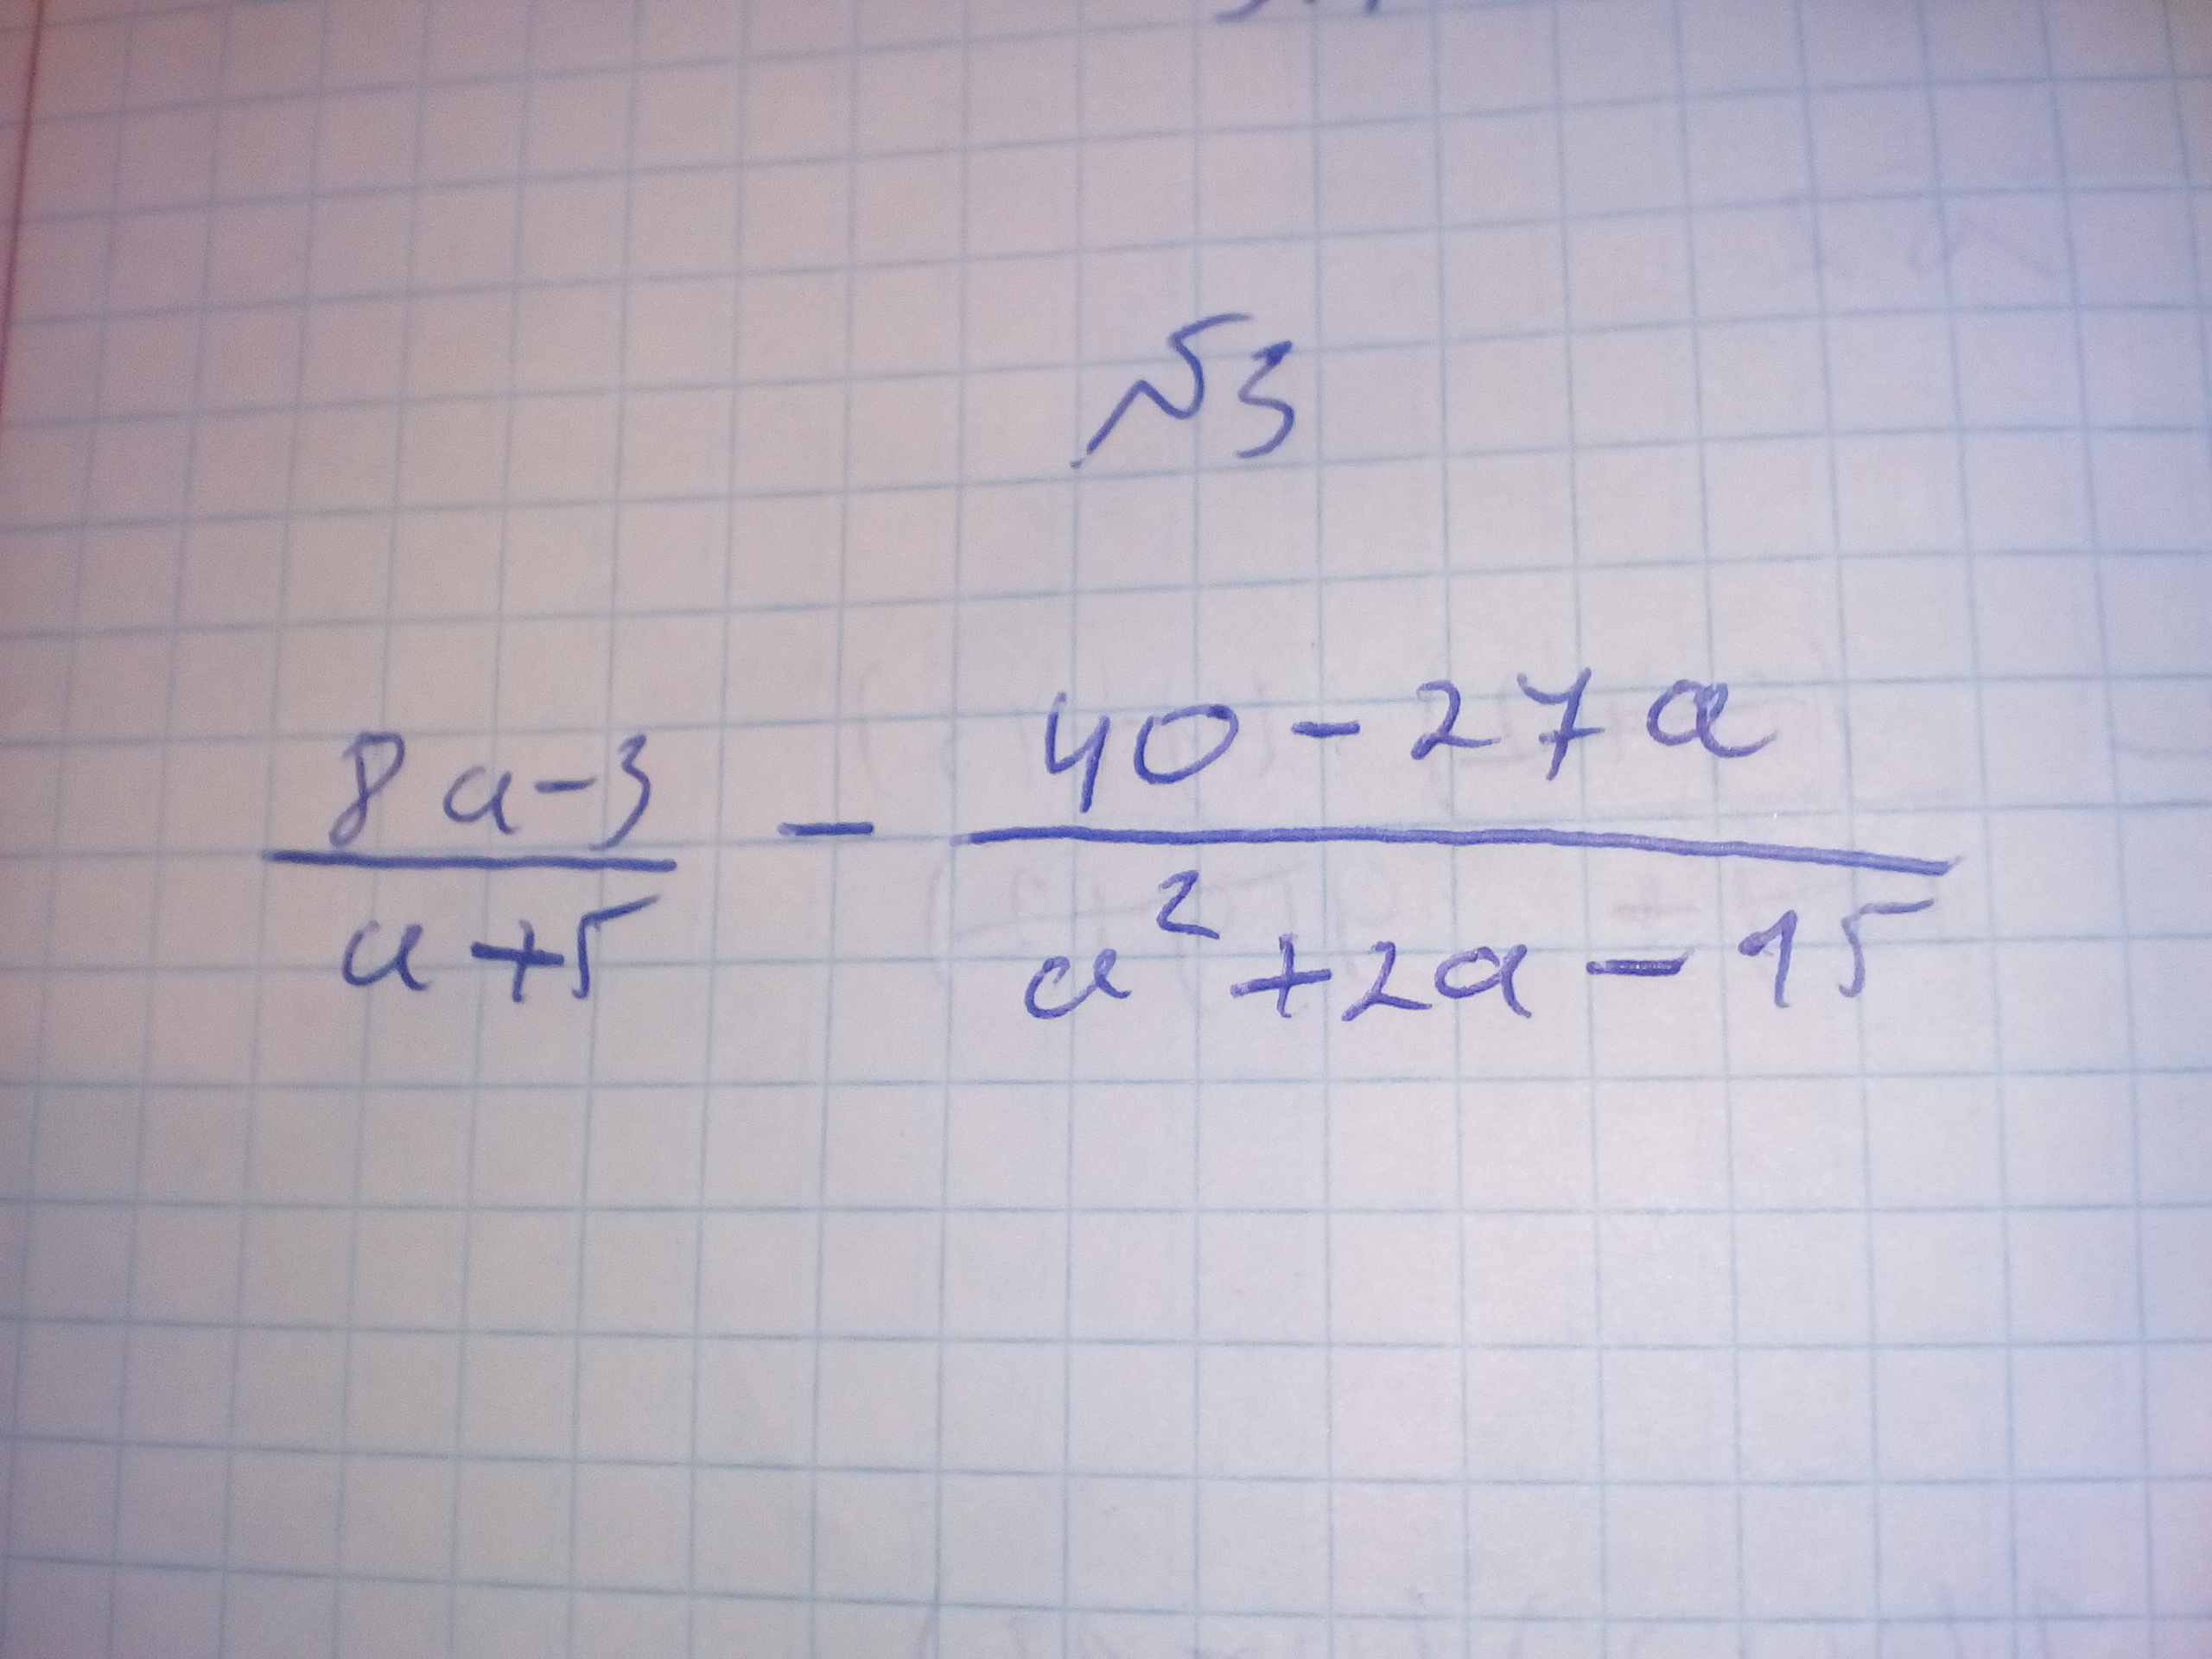 №3
8a-3 / a+5 - 40-27a / a²+2a-15